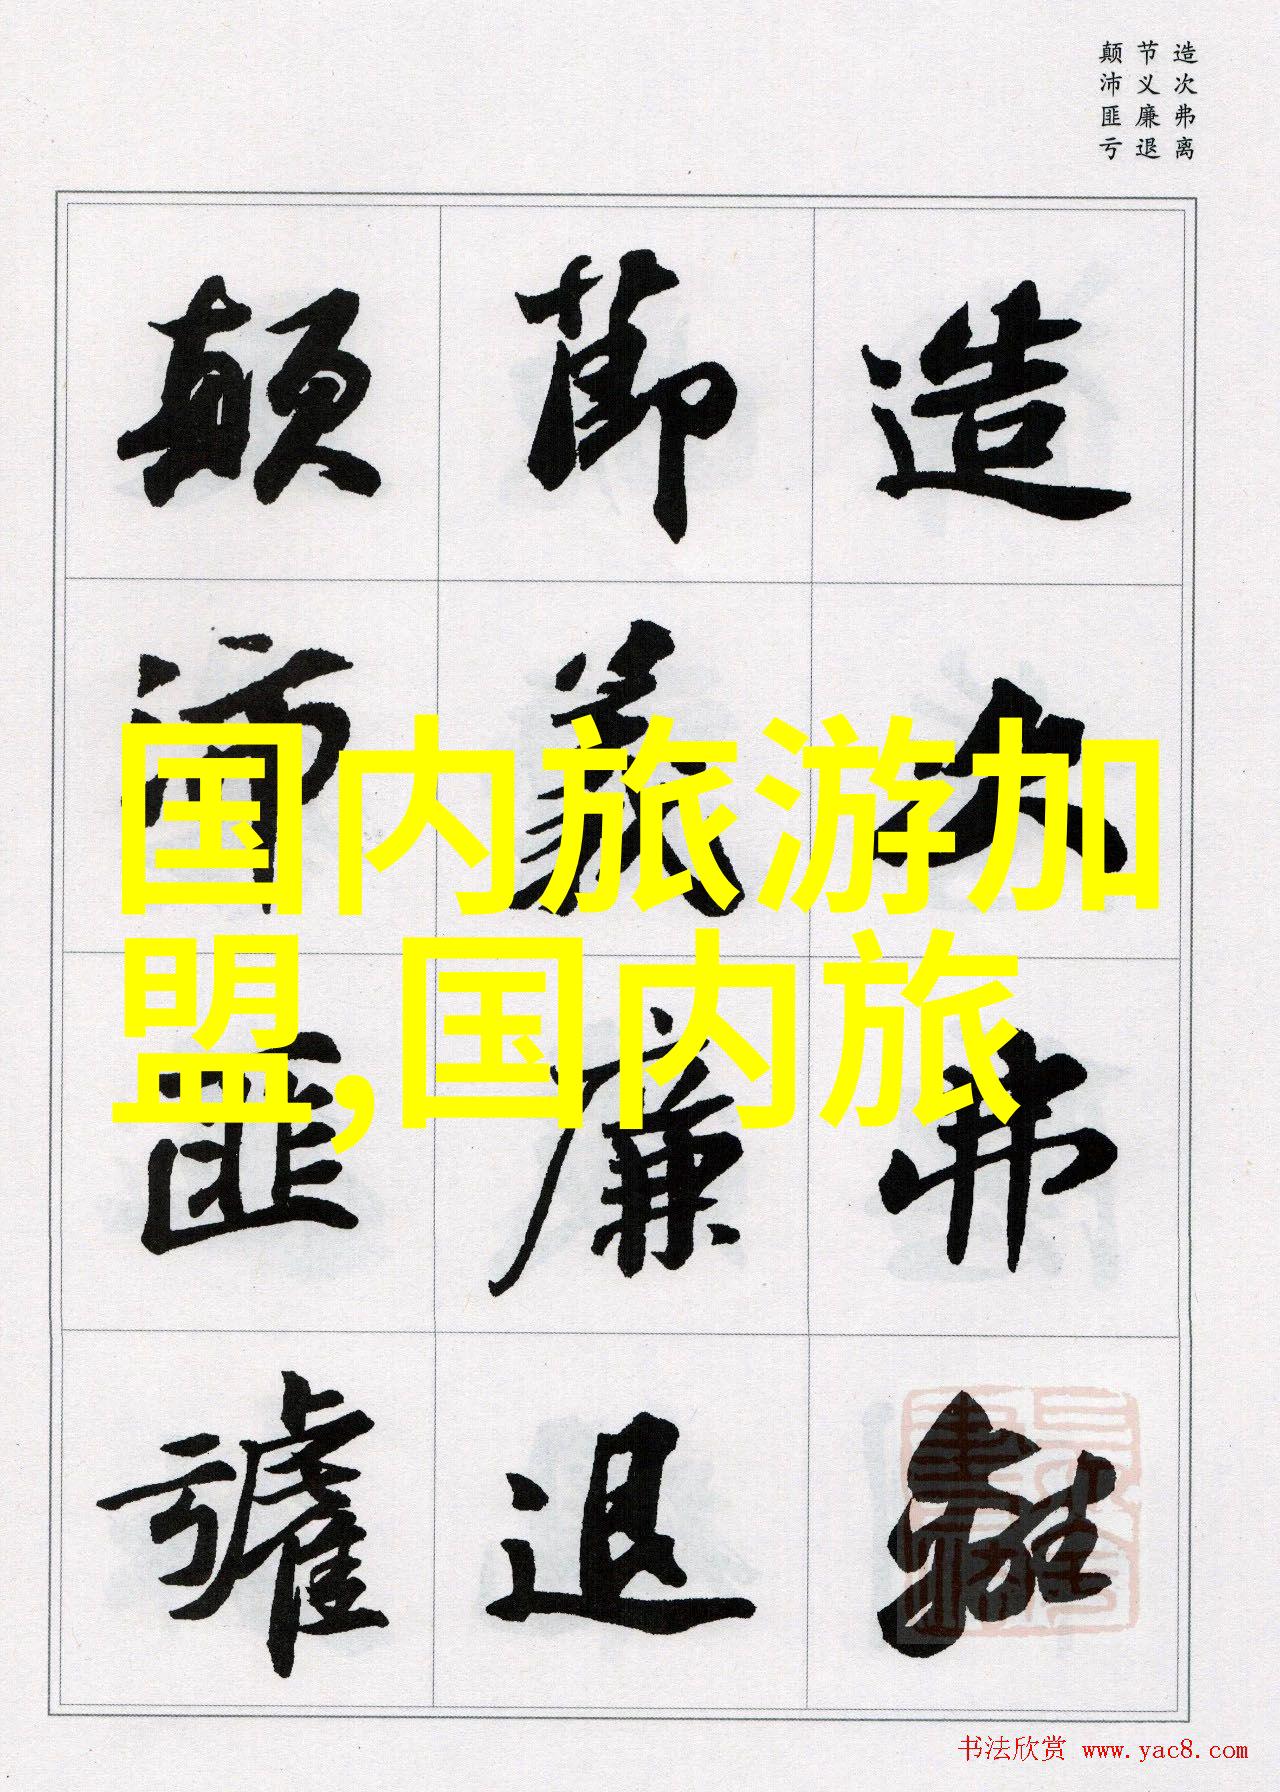 造次弗离
节义廉退
颠沛匪亏
造次弗離
節義廉退
顛沛匪虧
国内旅游加
盟,国内旅
书法欣赏 www.yac8.com